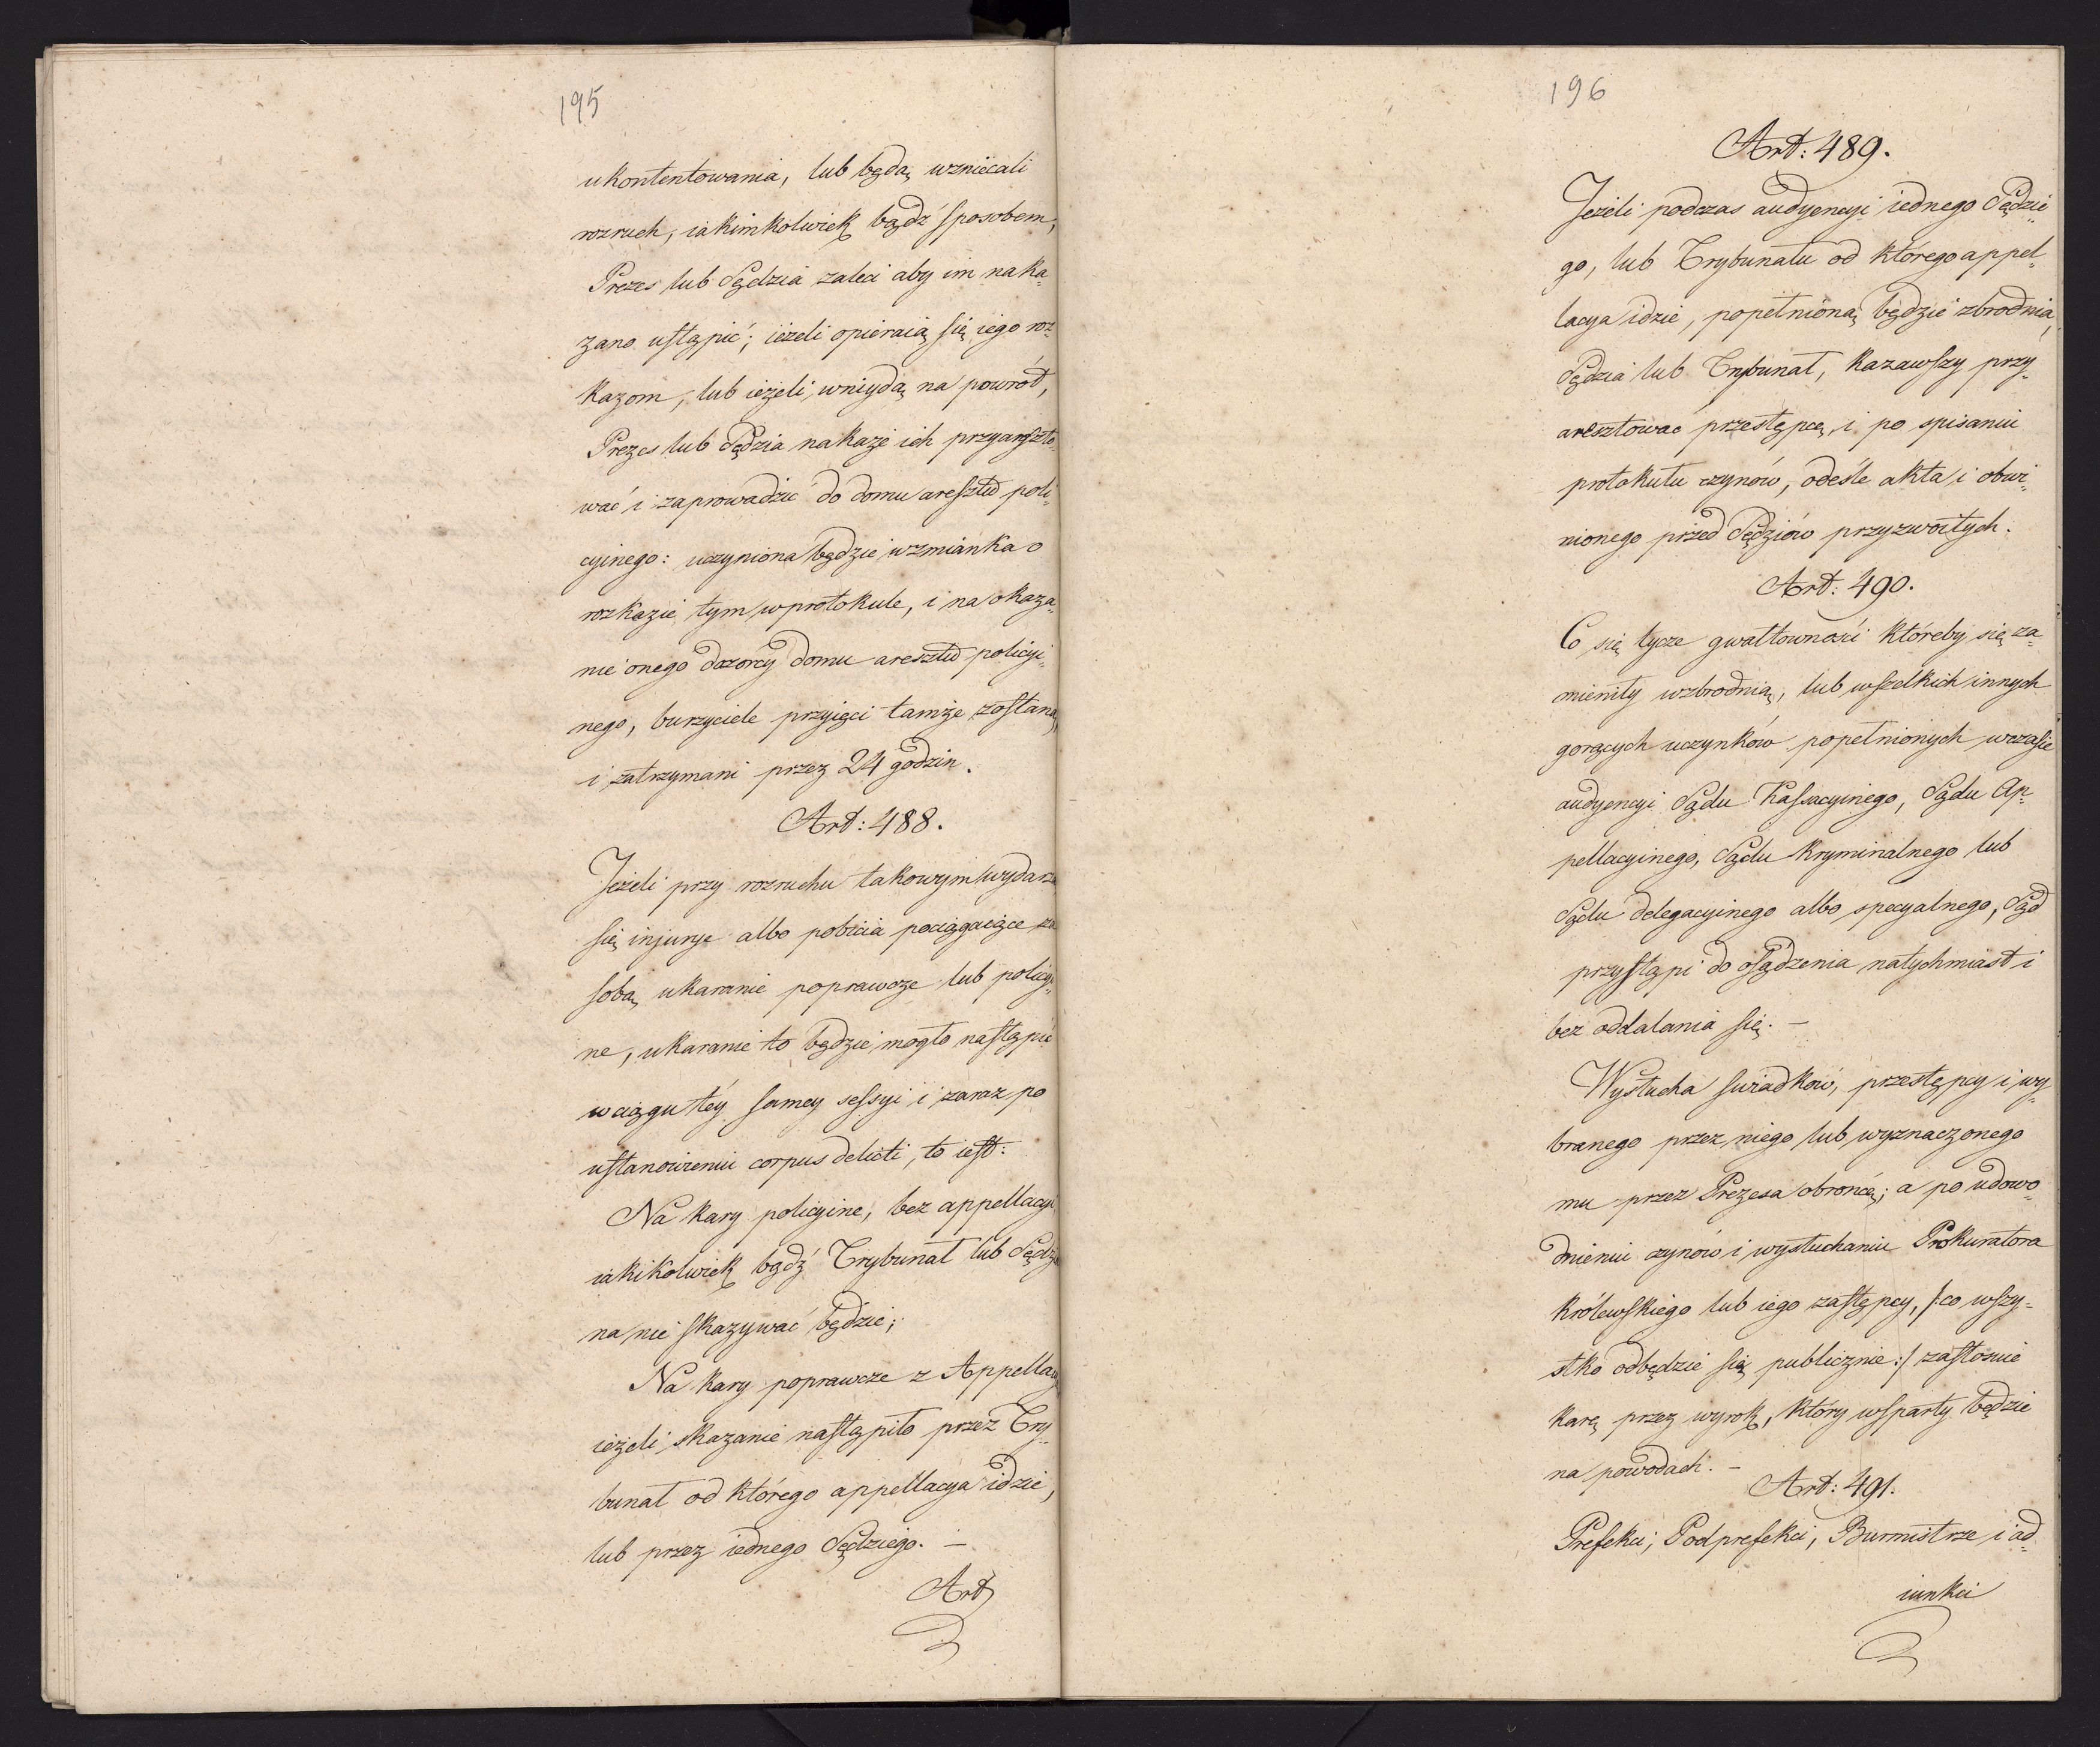 195
ukontentowania, lub będą wzniecali
rozruch, iakimkolwiek bądź sposobem,
Prezes lub Sędzia zaleci aby im naka„
zano ustąpić; ieżeli opieraią się iego roz„
kazom, lub ieżeli wniydą na powrót,
Prezes lub Sędzia nakaże ich przyareszto„
wać i zaprowadzić do domu aresztu poli„
cyinego: uczyniona będzie wzmianka o
rozkazie tym w protokule, i na okaza„
nie onego dozorcy domu aresztu policyi„
nego, burzyciele przyięci tamże zostaną,
i zatrzymani przez 24 godzin.
Art: 488.
Jeżeli przy rozruchu takowym wydarzą
się injurye albo pobicia pociągaiące za
sobą ukaranie poprawcze lub policyi„
ne, ukaranie to będzie mogło nastąpić
w ciągu téy samey sessyi i zaraz po
ustanowieniu corpus delicti, to iest:
Na kary policyine, bez appellacyi
iakikolwiek bądź Trybunał lub Sędzia
na nie skazywać będzie;
Na kary poprawcze z Appellacyą
ieżeli skazanie nastąpiło przez Try„
bunał od którego appellacya idzie,
lub przez iednego Sędziego. —
Art
196
Art: 489.
Jeżeli podczas audyencyi iednego Sędzie„
go, lub Trybunału od którego appel„
lacya idzie, popełnioną będzie zbrodnia,
Sędzia lub Trybunał, kazawszy przy„
aresztować przestępcę, i po spisaniu
protokułu czynów, odeśle akta i obwi„
nionego przed Sędziów przyzwoitych.
Art: 490.
Co się tycze gwałtowności któreby się za„
mieniły w zbrodnią, lub wszelkich innych
gorących uczynków popełnionych w czasie
audyencyi Sądu Kassacyinego, Sądu Ap„
pellacyinego, Sądu Kryminalnego lub
Sądu delegacyinego albo specyalnego, Sąd
przystąpi do osądzenia natychmiast i
bez oddalania się. —
Wysłucha swiadków, przestępcy i wy„
branego przez niego lub wyznaczonego
mu przez Prezesa obrońcę; a po udowo„
dnieniu czynów i wysłuchaniu Prokuratora
Królewskiego lub iego zastępcy, /: co wszy„
stko odbędzie się publicznie :/ zastosuie
karę przez wyrok, który wsparty będzie
na powodach. —
Art: 491.
Prefekci, Podprefekci, Burmistrze i ad„
iunkci